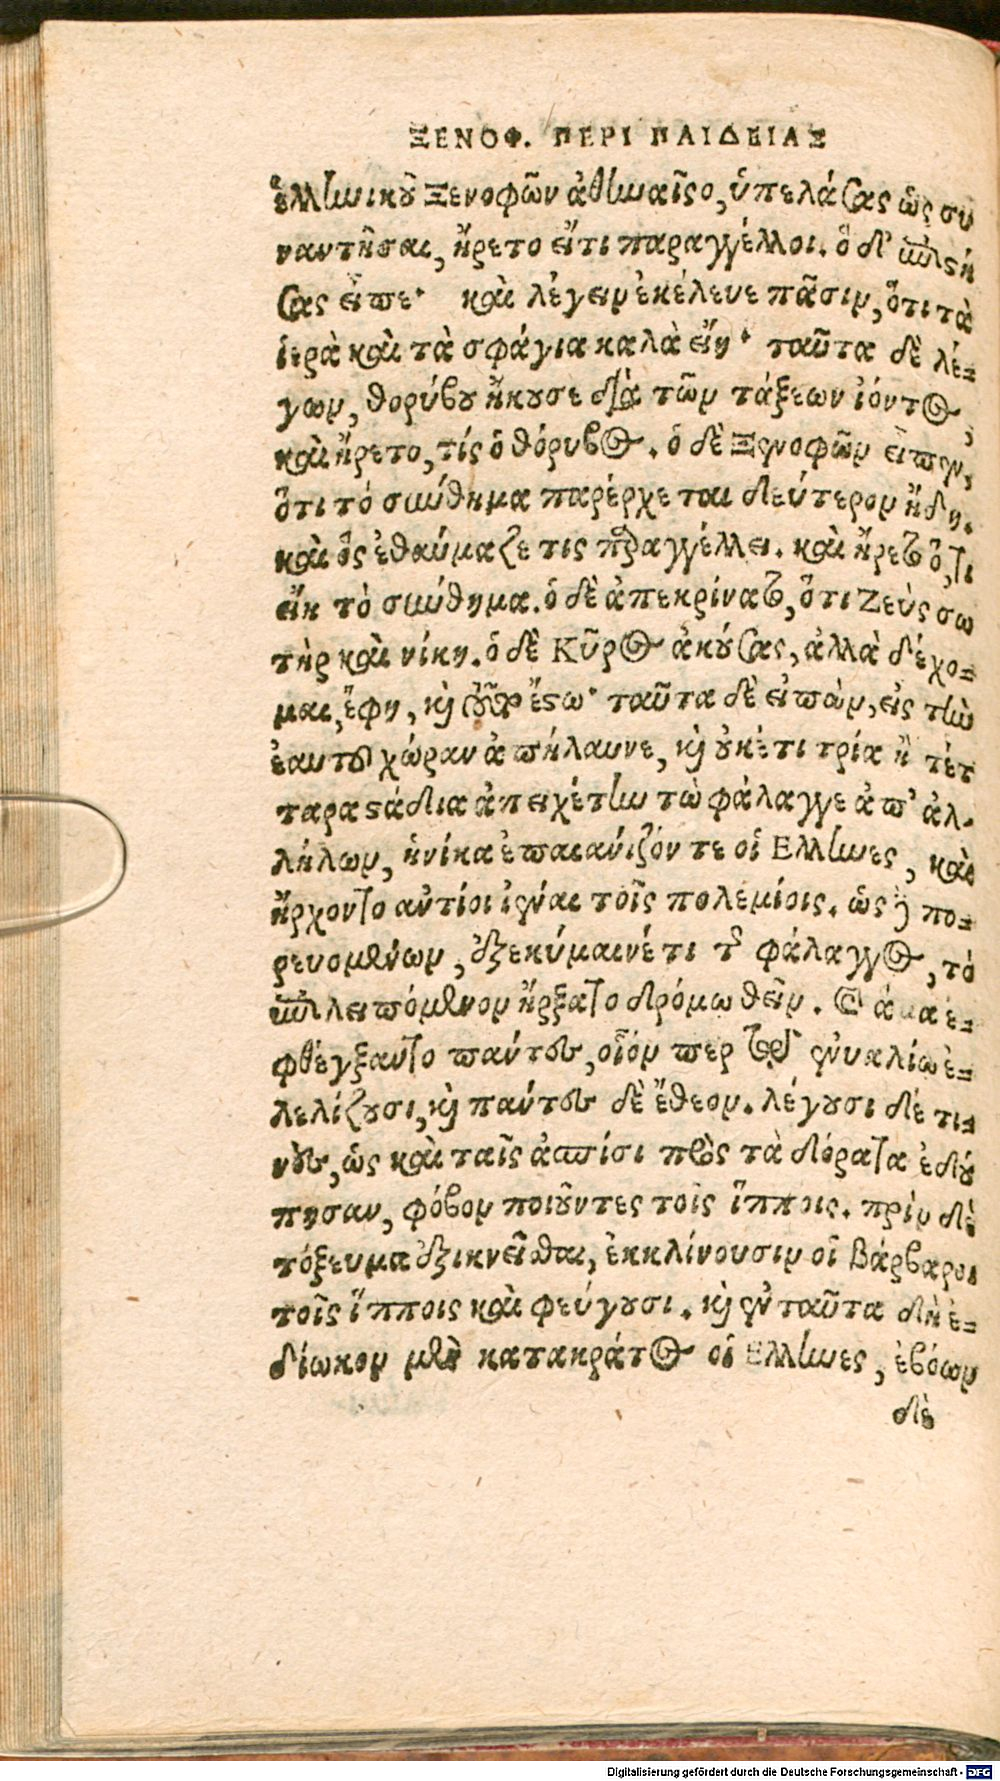 ΞΕΝΟΦ. ΠΕΡΙ ΠΑΙΔΕΙΑΣ
ἑλληνικοῦ Ξενοφῶν ἀθηναῖος, ὑπελάσας ὡς συ
ναντῆσαι, ἤρετο εἴ τι παραγγέλλοι. ὁ δ' ἐπιστή
σας εἶπε· καὶ λέγειν ἐκέλευε πᾶσιν, ὅτι τὰ
ἱερὰ καὶ τὰ σφάγια καλὰ εἴη· ταῦτα δὲ λέ-
γων, θορύβου ἤκουσε διὰ τῶν τάξεων ἰόντος,
καὶ ἤρετο, τίς ὁ θόρυβος. ὁ δὲ Ξενοφῶν εἶπεν,
ὅτι τὸ σύνθημα παρέρχεται δεύτερον ἤδη.
καὶ ὃς ἐθαύμαζε τις παραγγέλλει. καὶ ἤρετο ὅ,τι
εἴη τὸ σύνθημα. ὁ δὲ ἀπεκρίνατο, ὅτι Ζεὺς σω
τὴρ καὶ νίκη. ὁ δὲ Κῦρος ἀκούσας, ἀλλὰ δέχο-
μαι, ἔφη, καὶ τοῦτο ἔστω· ταῦτα δὲ εἰπὼν, εἰς τὴν
ἑαυτοῦ χώραν ἀπήλαυνε, καὶ οὐκέτι τρία ἢ τέτ
ταρα στάδια ἀπειχέτην τὼ φάλαγγε ἀπ' ἀλ-
λήλων, ἡνίκα ἐπαιάνιζόν τε οἱ Ελληνες, καὶ
ἤρχοντο ἀντίοι ἰέναι τοῖς πολεμίοις. ὡς δὲ πο-
ρευομένων, ἐξεκύμαινέ τι τῆς φάλαγγος, τὸ
ἐπιλειπόμενον ἤρξατο δρόμω θεῖν. καὶ ἅμα ἐ-
φθέγξαντο πάντες, οἷόν περ τῷ ἐνυαλίω ἐ-
λελίζουσι, καὶ πάντες δὲ ἔθεον. λέγουσι δέ τι-
νες, ὡς καὶ ταῖς ἀσπίσι πρὸς τὰ δόρατα ἐδού
πησαν, φόβον ποιοῦντες τοῖς ἵπποις. πρὶν δὲ
τόξευμα ἐξικνεῖσθαι, ἐκκλίνουσιν οἱ βάρβαροι
τοῖς ἵπποις καὶ φεύγουσι. καὶ ἐνταῦτα δὴ ἐ-
δίωκον μὲν κατακράτος οἱ Ελληνες, ἐβόων
δὲ
Digitalisierung gefördert durch die Deutsche Forschungsgemeinschaft - DFG